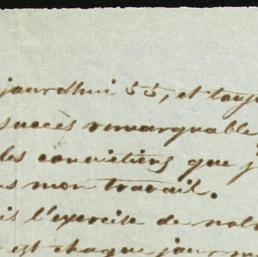 jourdhui 55, et touj
succès remarquable
les convictions que j
mon travail.
l'exercise de
est chaque jour